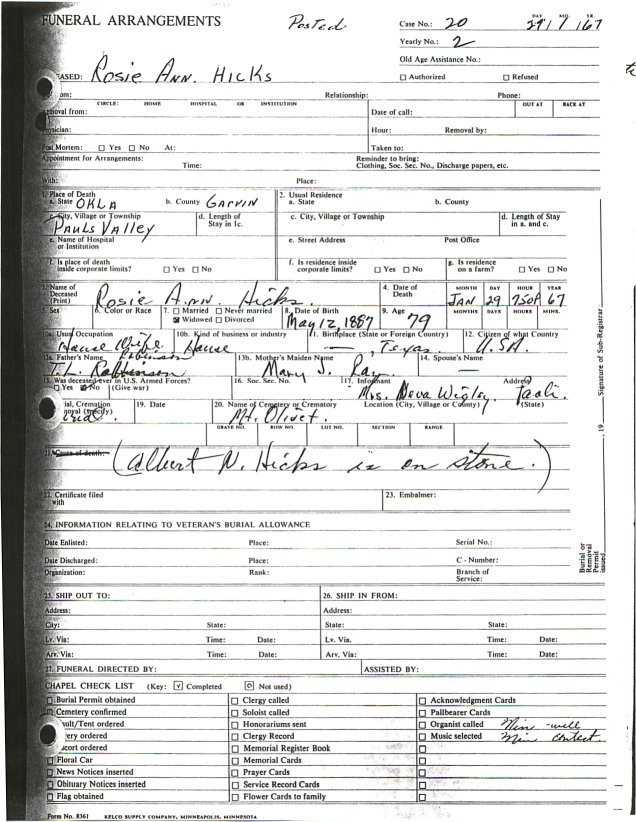 FUNERAL ARRANGEMENTS Posted Case No.: 20 DAY MO. YR. 29 / 1 / 67
Yearly No.: 2
Old Age Assistance No.:
EASED: Rosie Ann. Hicks □ Authorized □ Refused
om: Relationship: Phone:
CIRCLE: HOME HOSPITAL OR INSTITUTION OUT AT BACK AT
moval from: Date of call:
ysician: Hour: Removal by:
Post Mortem: □ Yes □ No At: Taken to:
Appointment for Arrangements: Time: Reminder to bring: Clothing, Soc. Sec. No., Discharge papers, etc.
With: Place:
1. Place of Death 2. Usual Residence
a. State OKLA b. County GARVIN a. State b. County
c. City, Village or Township Pauls Valley d. Length of Stay in 1c. c. City, Village or Township d. Length of Stay in a. and c.
e. Name of Hospital or Institution e. Street Address Post Office
f. Is place of death inside corporate limits? □ Yes □ No f. Is residence inside corporate limits? □ Yes □ No g. Is residence on a farm? □ Yes □ No
3. Name of Deceased (Print) Rosie Ann. Hicks. 4. Date of Death MONTH DAY HOUR YEAR JAN 29 750P 67
5. Sex 6. Color or Race 7. □ Married □ Never married ☒ Widowed □ Divorced 8. Date of Birth May 12, 1887 9. Age 79 MONTHS DAYS HOURS MINS.
10a. Usual Occupation House Wife 10b. Kind of business or industry House 11. Birthplace (State or Foreign Country) —, Texas. 12. Citizen of what Country U.S.A.
13a. Father's Name Robinson T.L. Robbinson 13b. Mother's Maiden Name Mary J. Ray 14. Spouse's Name
15. Was deceased ever in U.S. Armed Forces? □ Yes ☒ No (Give war) 16. Soc. Sec. No. 17. Informant Mrs. Neva Wigley Address Paoli.
ial, Cremation noval (Specify) 19. Date 20. Name of Cemetery or Crematory Mt. Olivet. Location (City, Village or County) (State)
GRAVE NO. ROW NO. LOT NO. SECTION RANGE
21. Cause of death: (Albert N. Hicks is on stone.)
22. Certificate filed with 23. Embalmer:
24. INFORMATION RELATING TO VETERAN'S BURIAL ALLOWANCE
Date Enlisted: Place: Serial No.:
Date Discharged: Place: C - Number:
Organization: Rank: Branch of Service:
25. SHIP OUT TO: 26. SHIP IN FROM:
Address: Address:
City: State: State: State:
Lv. Via: Time: Date: Lv. Via. Time: Date:
Arv. Via: Time: Date: Arv. Via: Time: Date:
27. FUNERAL DIRECTED BY: ASSISTED BY:
CHAPEL CHECK LIST (Key: ☑ Completed ⊡ Not used)
□ Burial Permit obtained □ Clergy called □ Acknowledgment Cards
□ Cemetery confirmed □ Soloist called □ Pallbearer Cards
ault/Tent ordered □ Honorariums sent □ Organist called Min - will
ery ordered □ Clergy Record □ Music selected Min contact.
scort ordered □ Memorial Register Book □
□ Floral Car □ Memorial Cards □
□ News Notices inserted □ Prayer Cards □
□ Obituary Notices inserted □ Service Record Cards □
□ Flag obtained □ Flower Cards to family □
Form No. 8361 KELCO SUPPLY COMPANY, MINNEAPOLIS, MINNESOTA
Signature of Sub-Registrar
, 19
Burial or Removal Permit issued